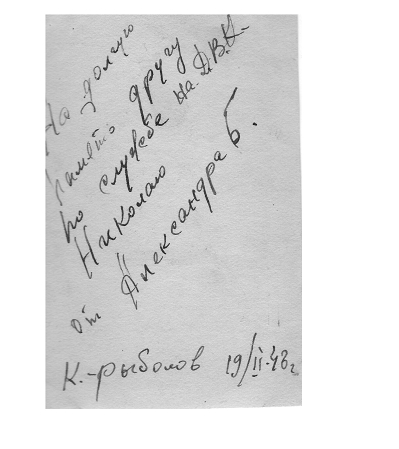 На долгую
память другу
по службе на Д.В.К.
Николаю
от Александра Б.
К.-рыболов 19/II-43г.